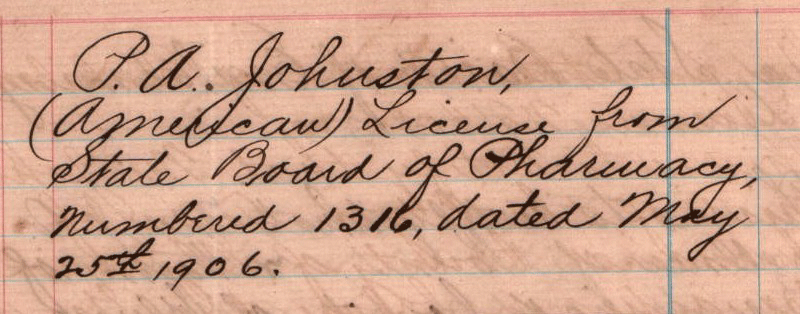 P. A. Johnston,
(American) License from
State Board of Pharmacy,
numbered 1316, dated May
25th 1906.